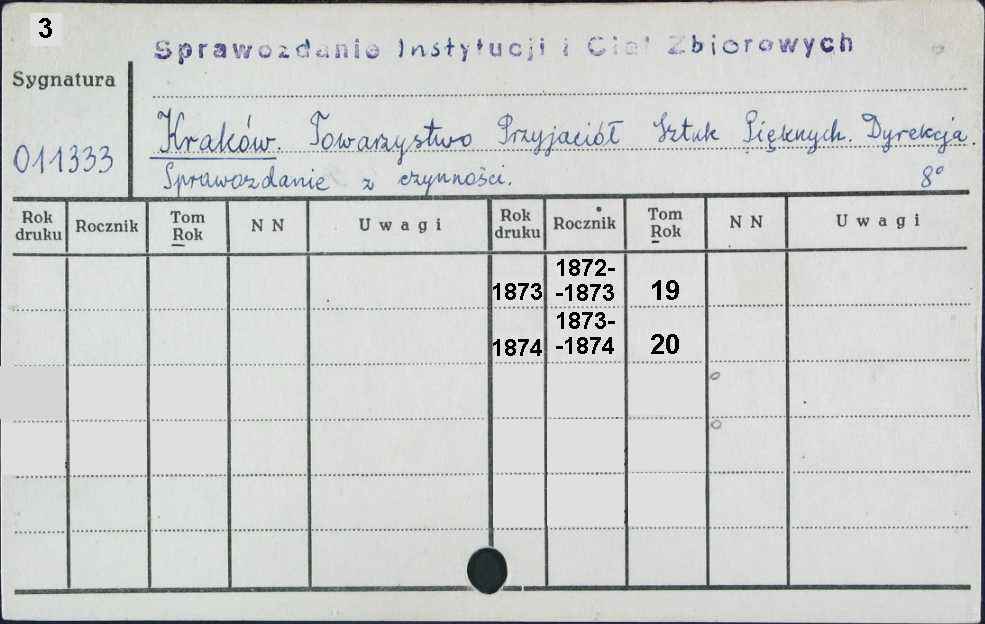 3
Sprawozdanie Instytucji i Ciał Zbiorowych
Sygnatura
011333
Kraków. Towarzystwo Przyjaciół Sztuk Pięknych. Dyrekcja.
Sprawozdanie z czynności. 8°
Rok druku Rocznik Tom Rok N N Uwagi Rok druku Rocznik Tom Rok N N Uwagi
1873 1872--1873 19
1874 1873--1874 20